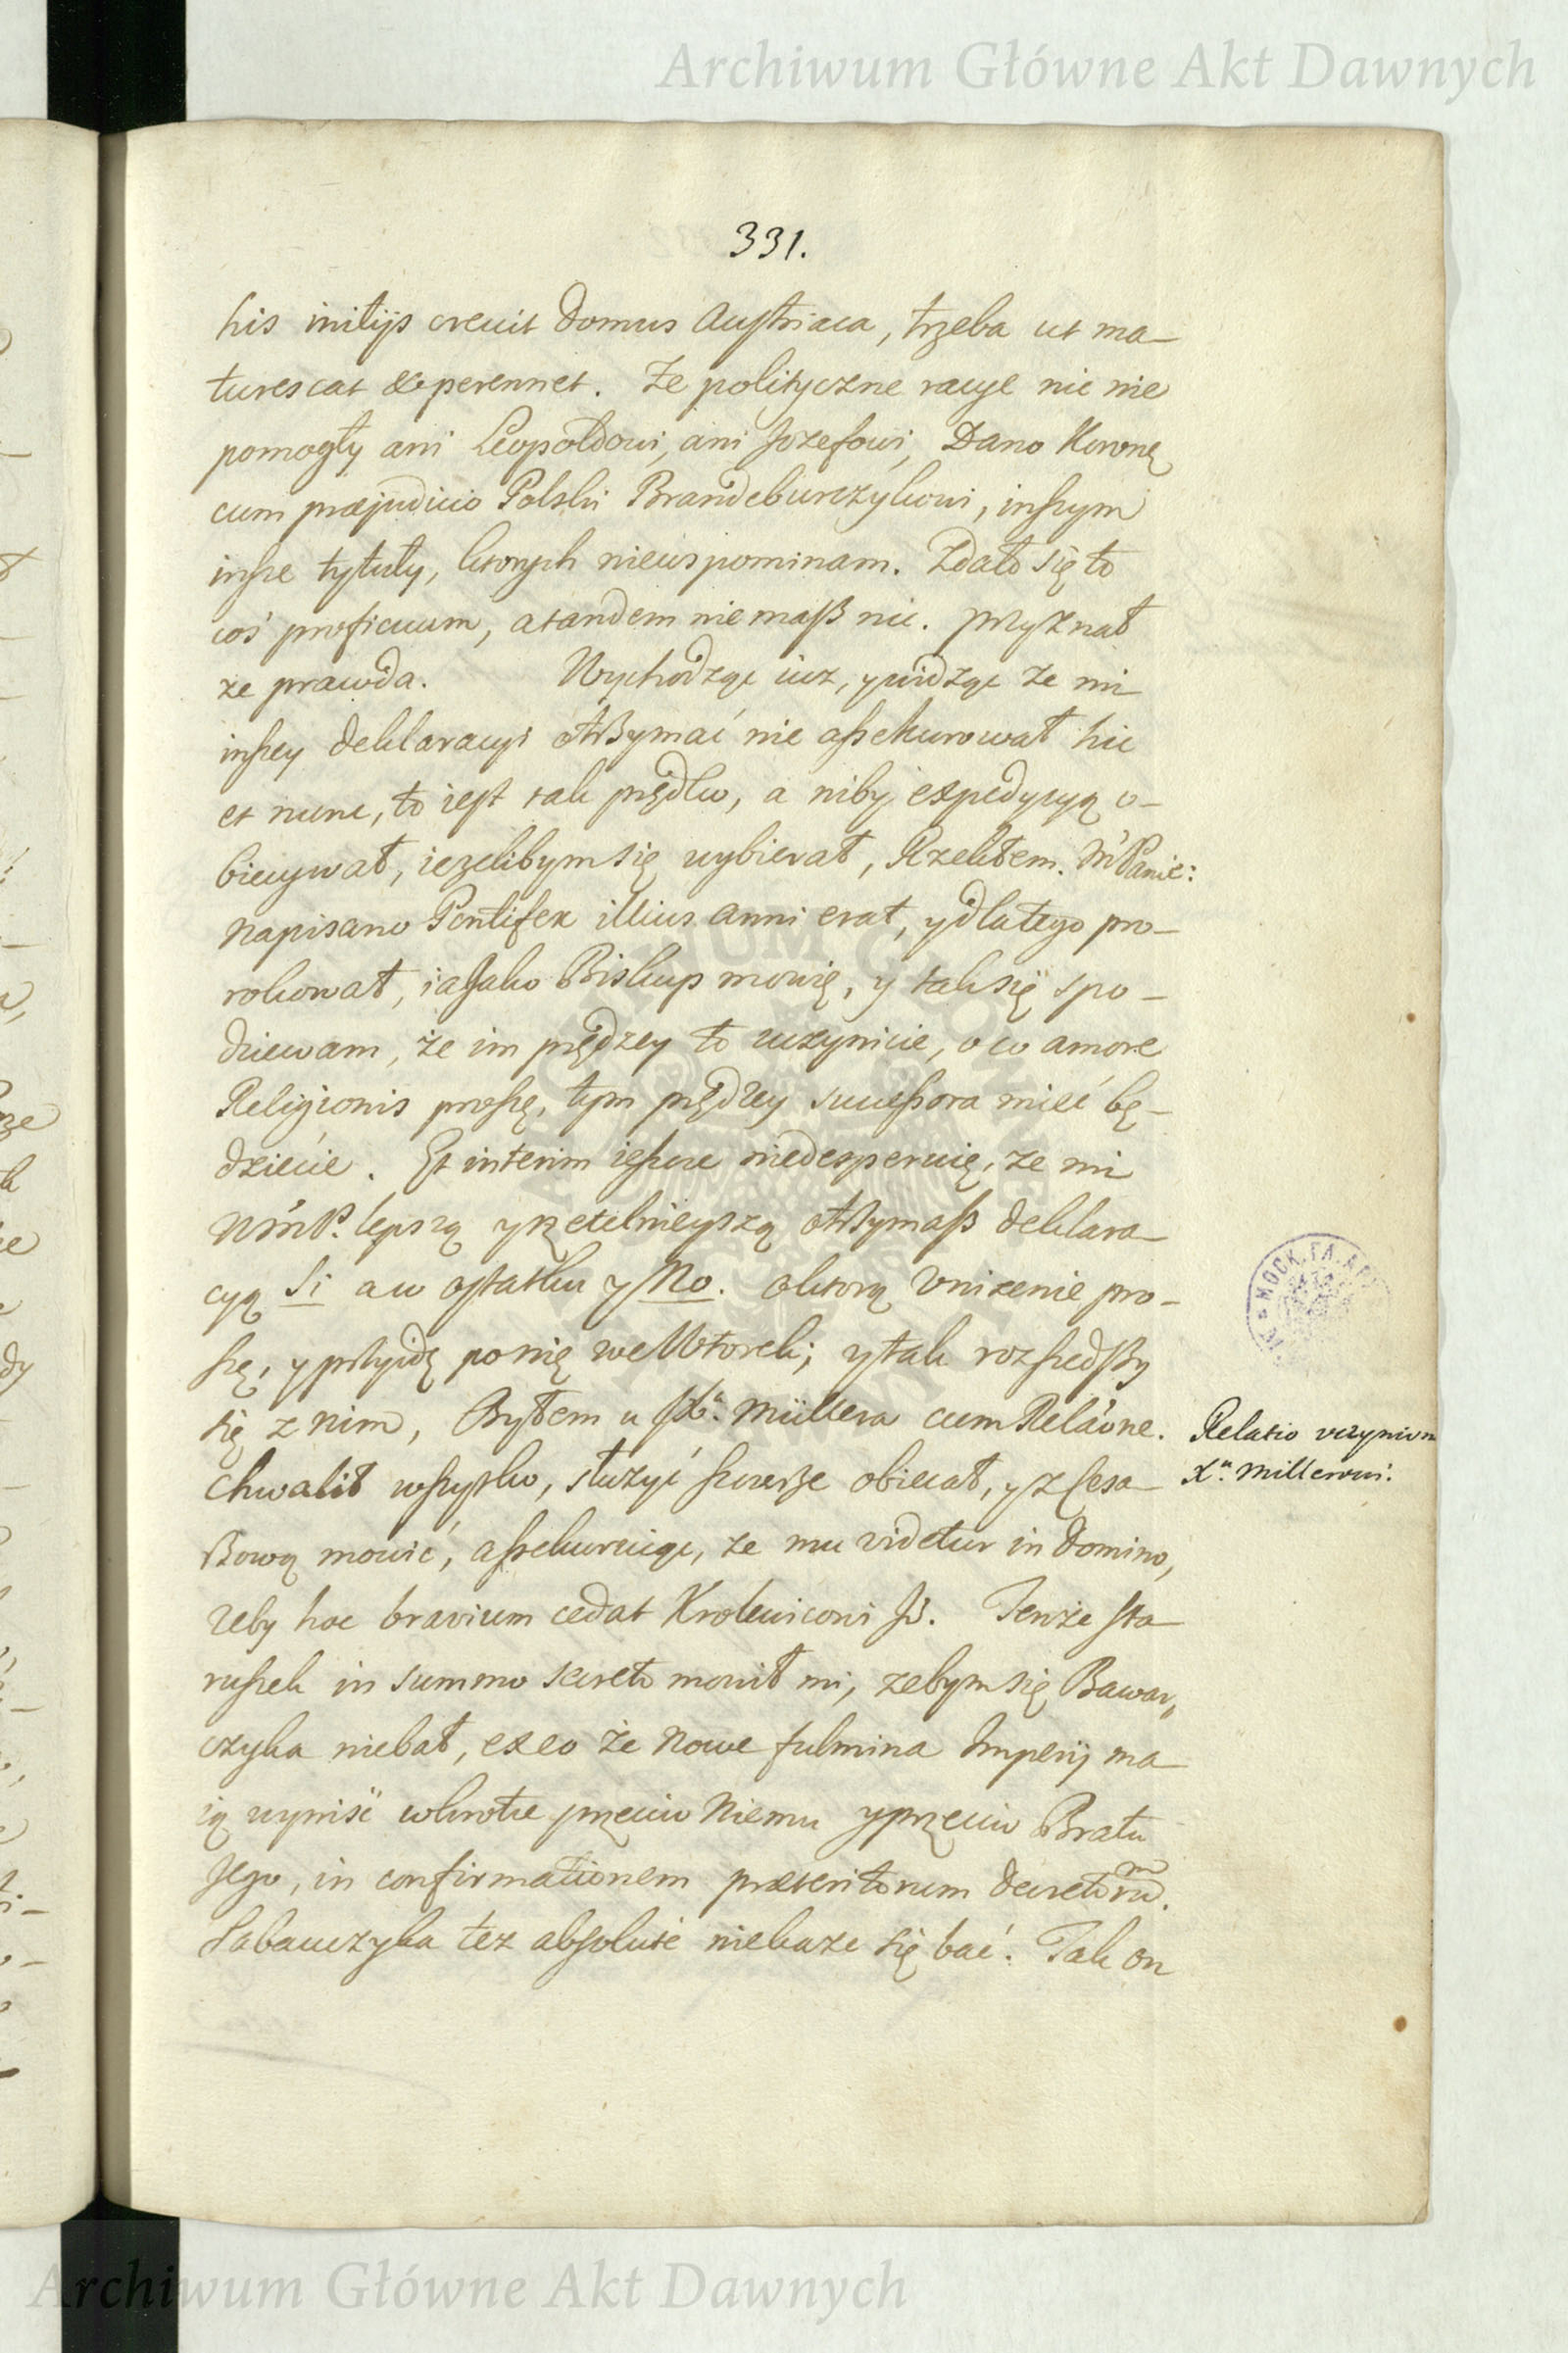 Archiwum Główne Akt Dawnych
331.
his initijs crevit Domus Austriaca, trzeba ut ma-
turescat & perennet. Ze polityczne racye nic nie
pomogły ani Leopoldowi, ani Jozefowi, Dano Koronę
cum præjudicio Polski Brandeburczykowi, inszym
insze tytuły, ktorych niewspominam. Zdało się to
coś proficuum, a tandem niemasz nic. przyznał
ze prawda. Wychodząc iuz, y widząc ze mi
inszey deklaracyi otrzymać nie assekurował hic
et nunc, to iest tak prędko, a niby expedycyą o-
biecywał, iezelibym się wybierał, Rzekłem. M Panie:
napisano Pontifex illius anni erat, y dlatego pro-
rokował, ia Jako Biskup mowię, y tak się spo-
dziewam, że im prędzey to uczynicie, o co amore
Religionis proszę, tym prędzey successora mieć bę-
dziecie. Et interim ieszcze niedesperuię, ze mi
WMP. lepszą y rzetelnieyszą otrzymasz deklara-
cyą Si a w ostatku y No. o ktorą Vnizenie pro-
szę, y przyidę po nię we Wtorek; y tak rozszedszy
się z nim, Byłem u JXa. Müllera cum Relaone.
Relatio uczynion
chwalił wszystko, służyć szczerze obiecał, y z Cesa-
Xu. Millerowi.
Rzową mowić, assekuruiąc, ze mu videtur in Domino,
zeby hoc bravium cedat Krolewicowi Jć. Tenże sta-
ruszek in summo secreto mowił mi, zebym się Bawar„
czyka niebał, ex eo że nowe fulmina Imperij ma-
ią wyniść wkrotce przeciw Niemu y przeciw Bratu
Jego, in confirmationem præteritorum decretorum.
Sabauczyka tez absolute niekaze się bać. Tak on
Archiwum Główne Akt Dawnych